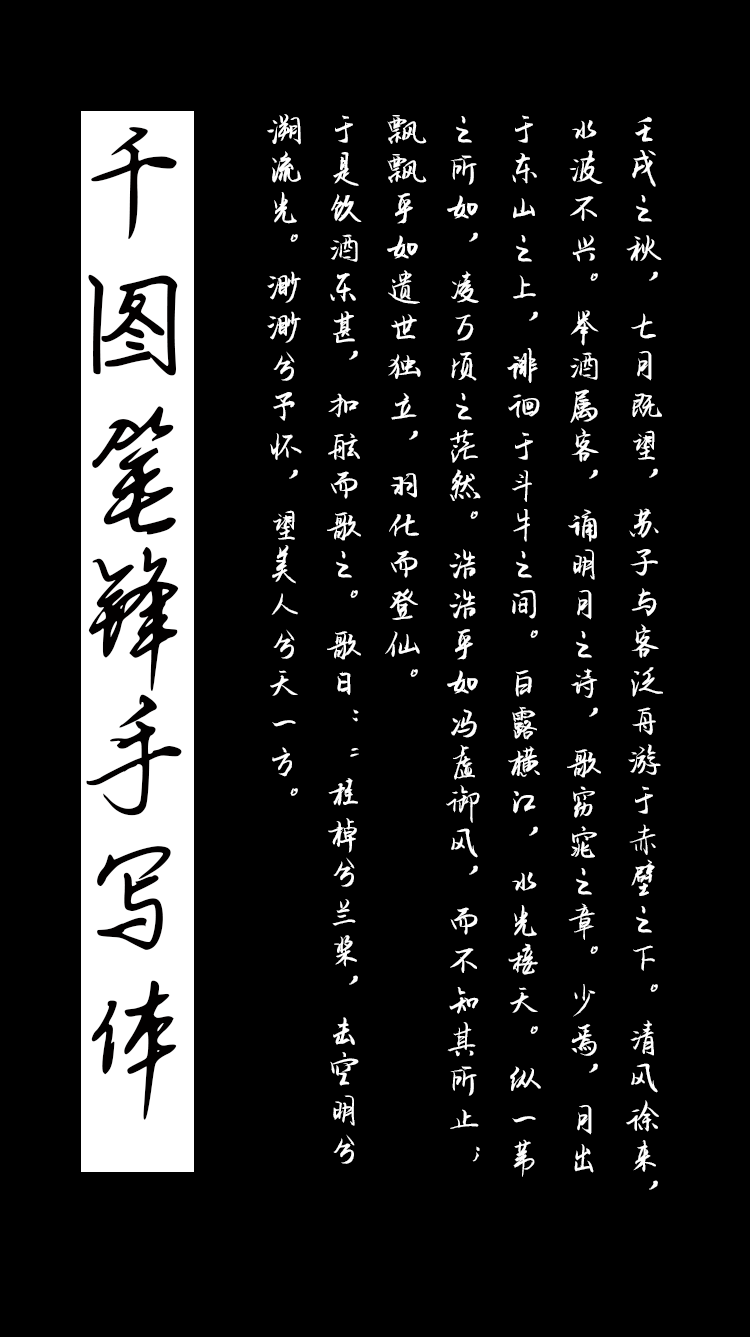 壬戌之秋，七月既望，苏子与客泛舟游于赤壁之下。清风徐来，
水波不兴。举酒属客，诵明月之诗，歌窈窕之章。少焉，月出
于东山之上，徘徊于斗牛之间。白露横江，水光接天。纵一苇
之所如，凌万顷之茫然。浩浩乎如冯虚御风，而不知其所止；
飘飘乎如遗世独立，羽化而登仙。
于是饮酒乐甚，扣舷而歌之。歌曰：“桂棹兮兰桨，击空明兮
溯流光。渺渺兮予怀，望美人兮天一方。
千图笔锋手写体